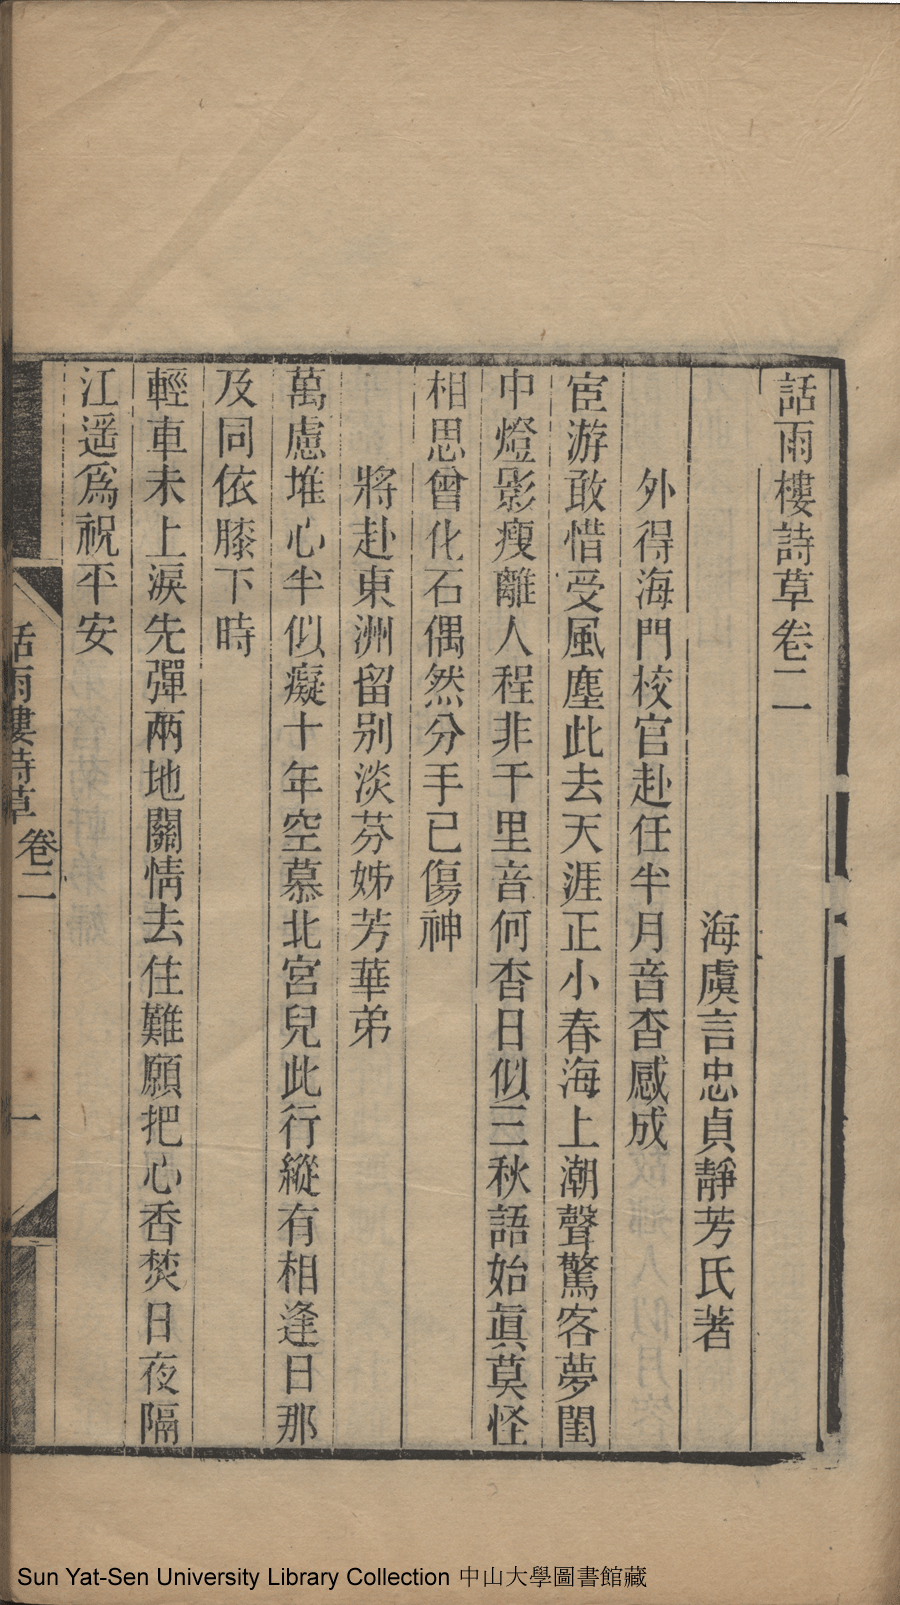 話雨樓詩草卷二
海虞言忠貞靜芳氏著
外得海門校官赴任半月音杳感成
宦游敢惜受風塵此去天涯正小春海上潮聲驚客夢閨
中燈影瘦離人程非千里音何杳日似三秋語始眞莫怪
相思曾化石偶然分手已傷神
將赴東洲留别淡芬姊芳華弟
萬慮堆心半似癡十年空慕北宮兒此行縱有相逢日那
及同依膝下時
輕車未上淚先彈兩地關情去住難願把心香焚日夜隔
江遥爲祝平安
話雨樓詩草
卷二
一
Sun Yat-Sen University Library Collection 中山大學圖書館藏